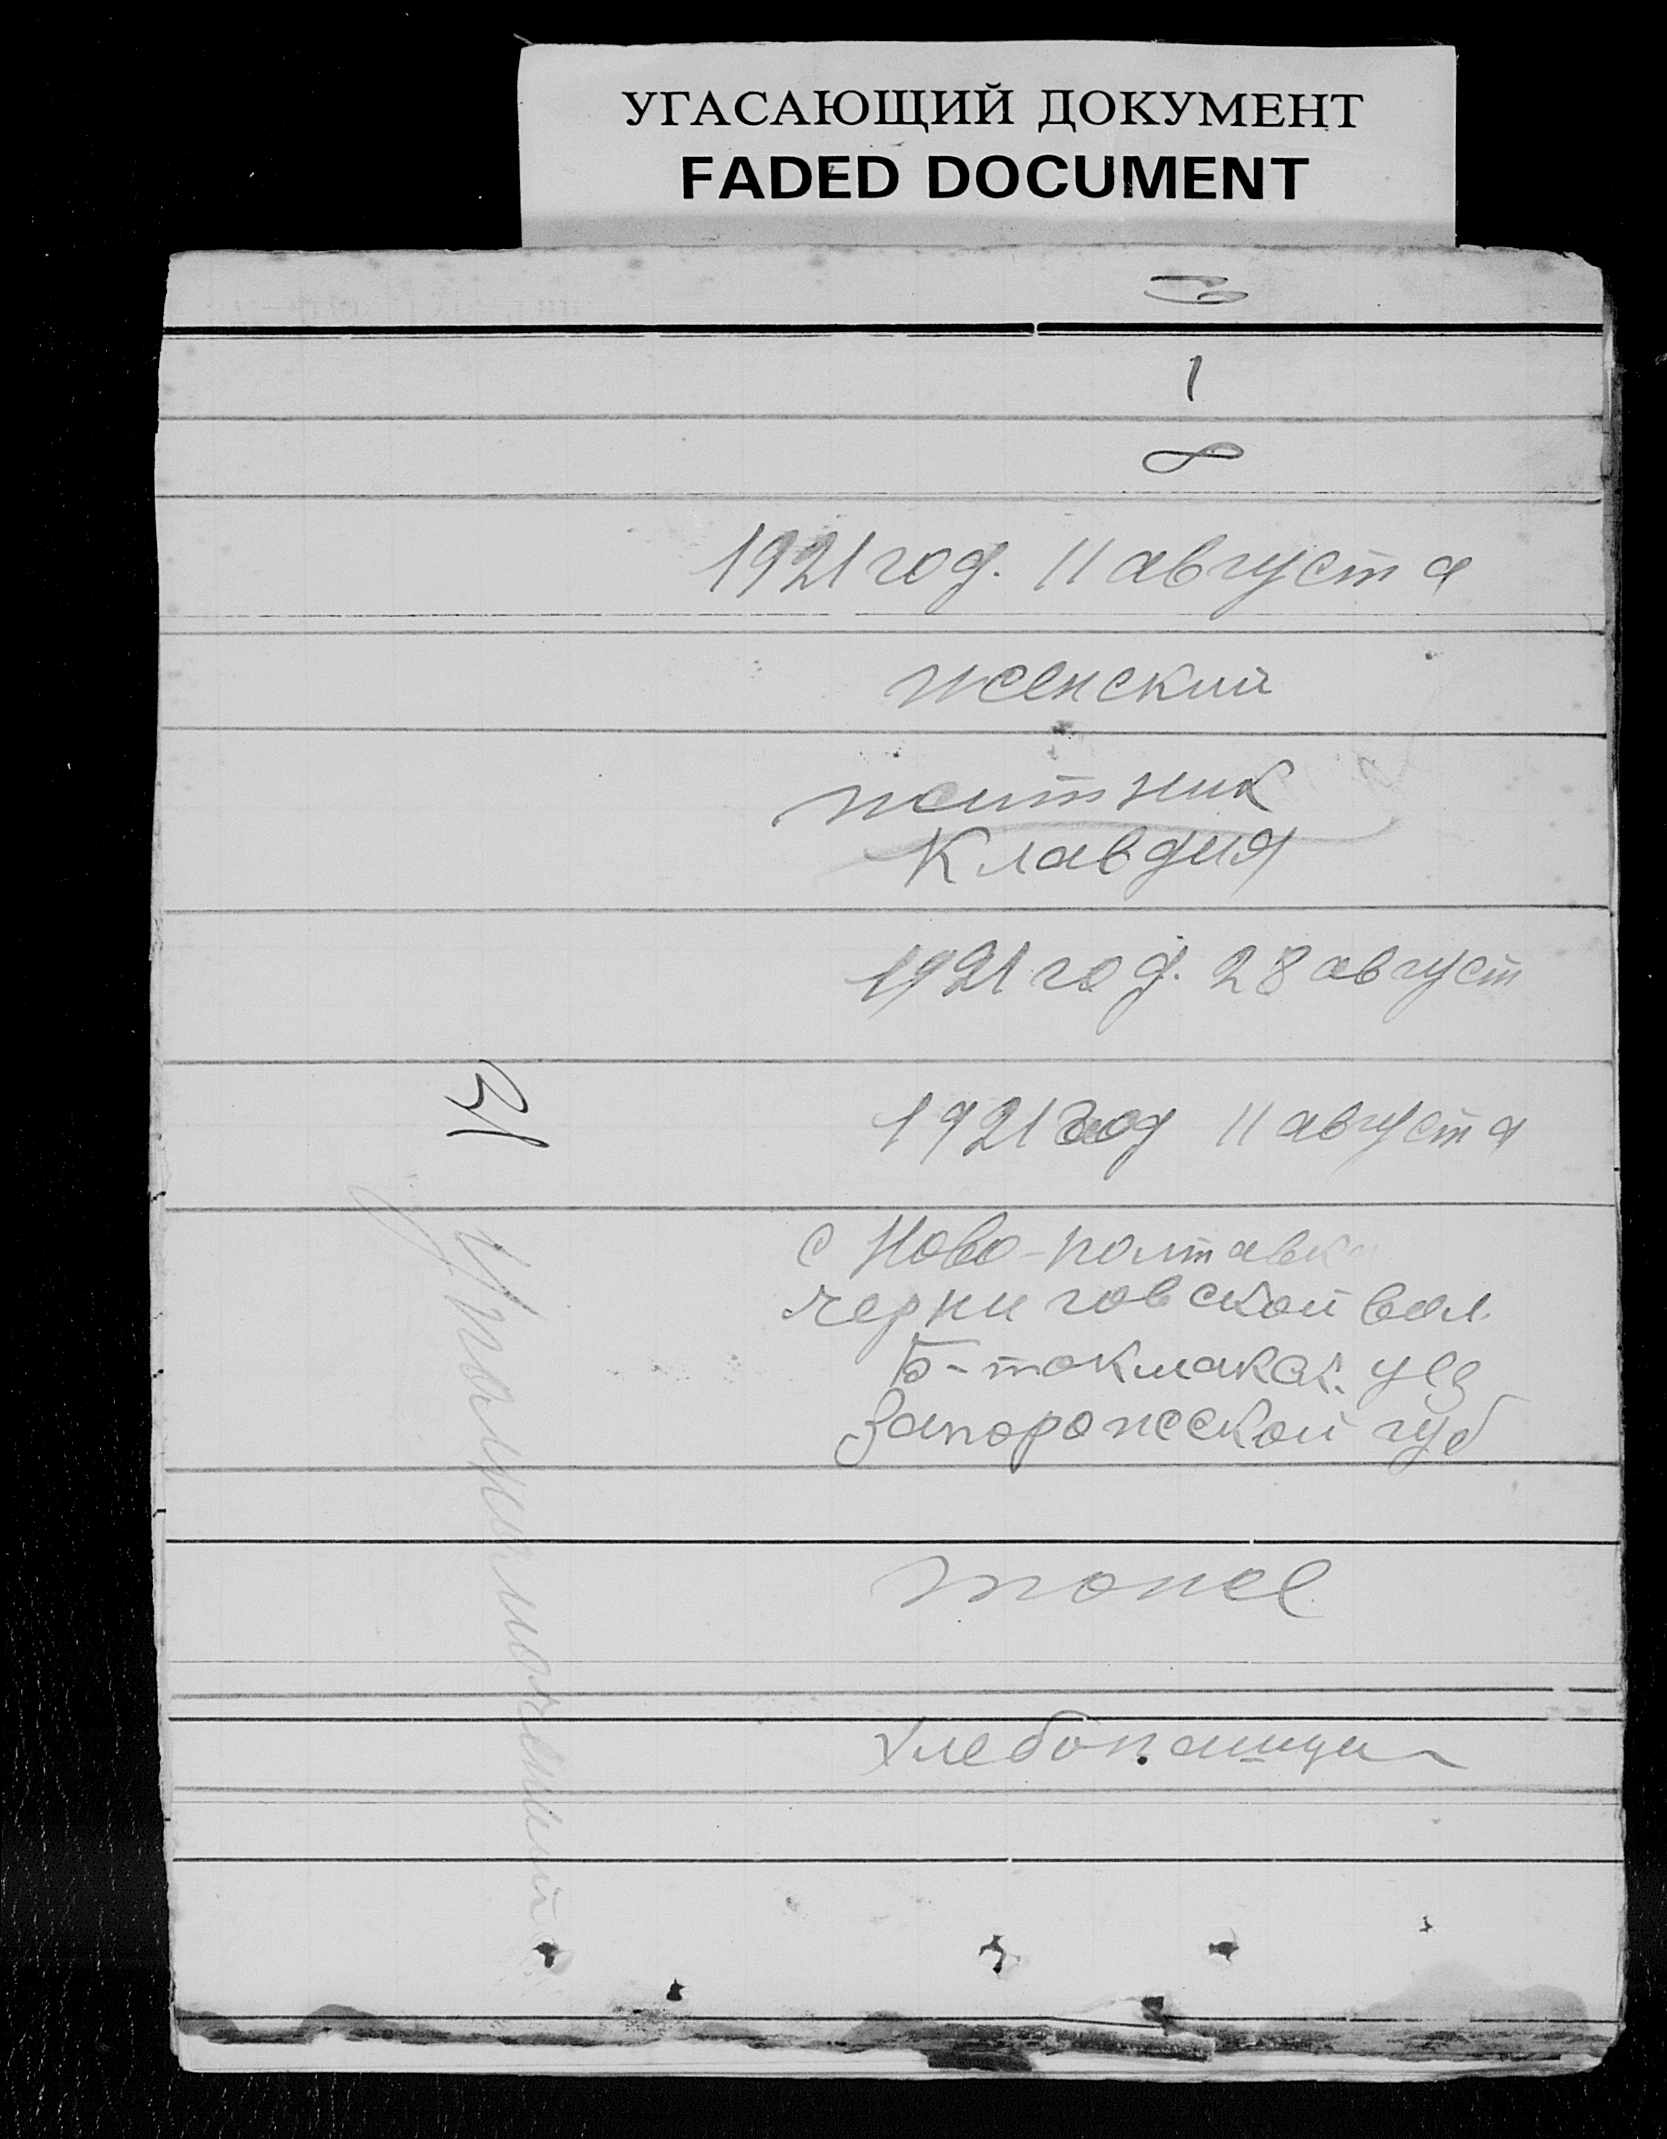 УГАСАЮЩИЙ ДОКУМЕНТ
FADED DOCUMENT
3
1
8
1921 год. 11 августа
женский
житник
Клавдия
1921 год. 28 август
1921 год 11 августа
с Ново-полтавка
черниговской вол.
Б-токмакск. уез
Запорожской губ
тоже
хлебопашци
Уполномоченный